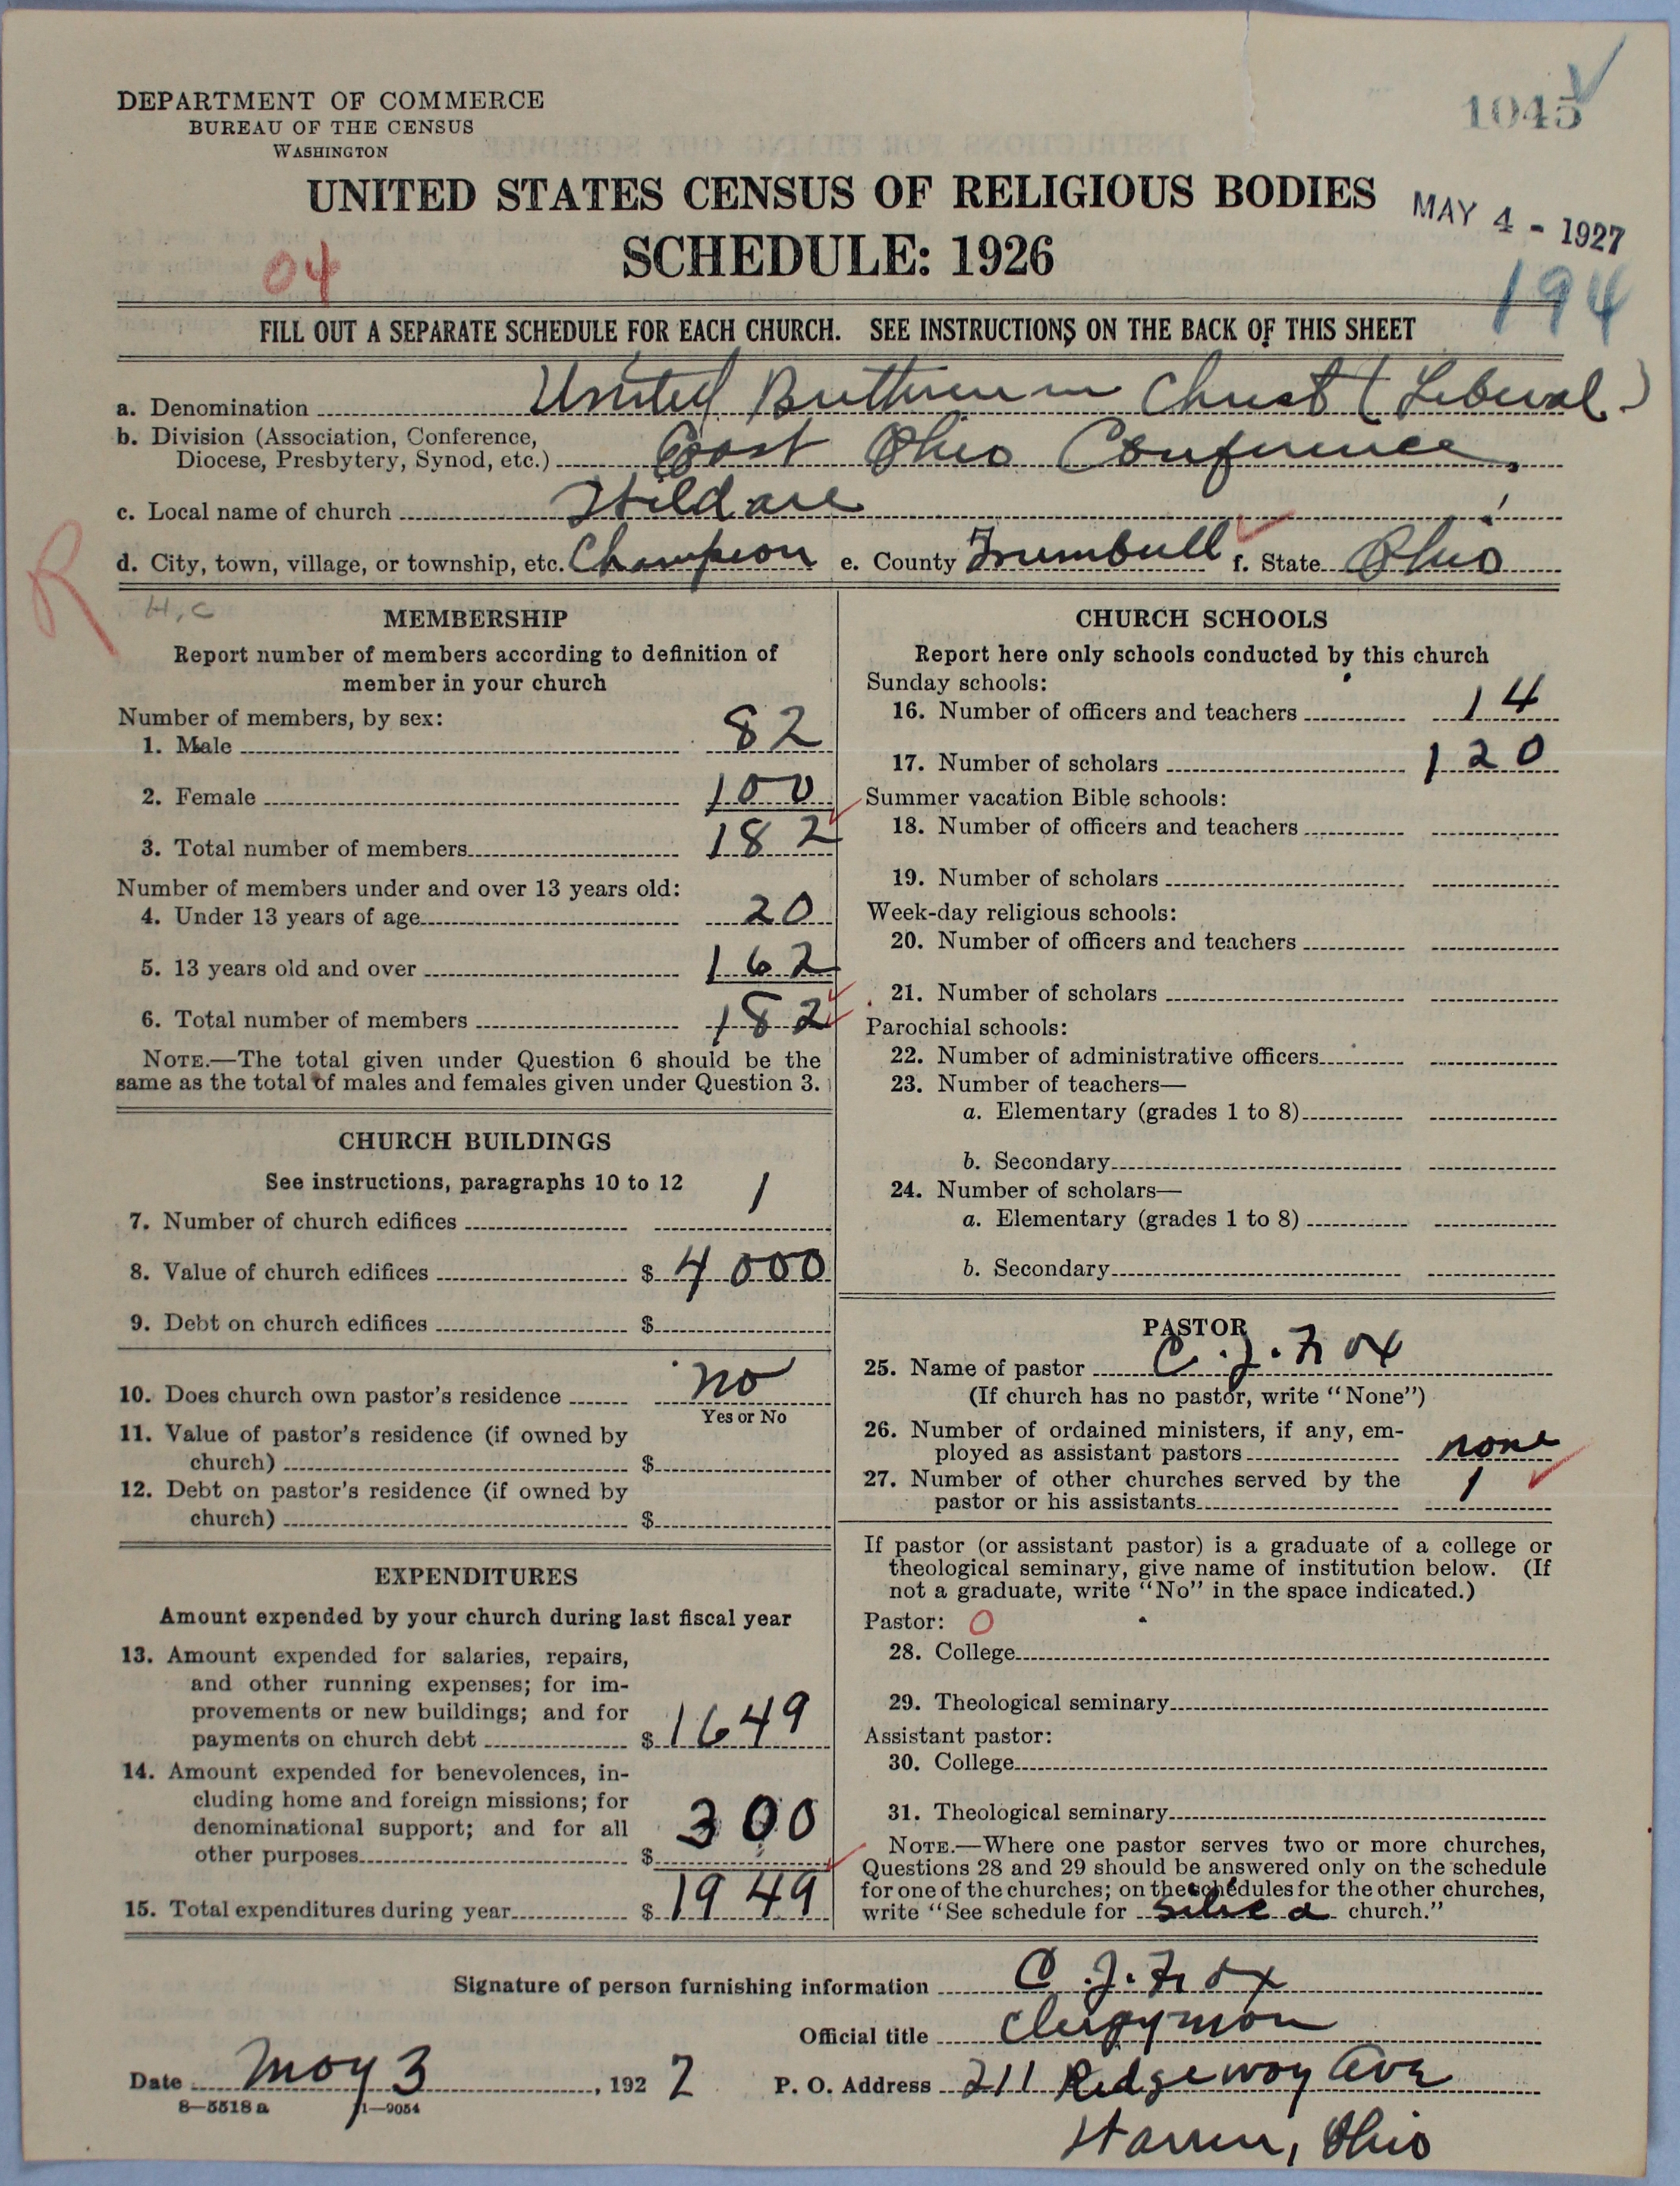 1045
DEPARTMENT OF COMMERCE
BUREAU OF THE CENSUS
WASHINGTON
UNITED STATES CENSUS OF RELIGIOUS BODIES
MAY 4 - 1927
SCHEDULE: 1926
04
194
FILL OUT A SEPARATE SCHEDULE FOR EACH CHURCH. SEE INSTRUCTIONS ON THE BACK OF THIS SHEET
a. Denomination United Brethren in Christ (Liberal)
b. Division (Association, Conference,
Diocese, Presbytery, Synod, etc.) East Ohio Conference.
c. Local name of church
d. City, town, village, or township, etc. Champion e. County Trumbull f. State Ohio
R
H, C
MEMBERSHIP
Report number of members according to definition of
member in your church
Number of members, by sex:
1. Male 82
2. Female 100
3. Total number of members 182
Number of members under and over 13 years old:
4. Under 13 years of age 20
5. 13 years old and over 162
6. Total number of members 182
NOTE.—The total given under Question 6 should be the
same as the total of males and females given under Question 3.
CHURCH BUILDINGS
See instructions, paragraphs 10 to 12
7. Number of church edifices 1
8. Value of church edifices $ 4000
9. Debt on church edifices $
10. Does church own pastor's residence no
Yes or No
11. Value of pastor's residence (if owned by
church) $
12. Debt on pastor's residence (if owned by
church) $
EXPENDITURES
Amount expended by your church during last fiscal year
13. Amount expended for salaries, repairs,
and other running expenses; for im-
provements or new buildings; and for
payments on church debt $ 1649
14. Amount expended for benevolences, in-
cluding home and foreign missions; for
denominational support; and for all
other purposes $ 300
15. Total expenditures during year $ 1949
CHURCH SCHOOLS
Report here only schools conducted by this church
Sunday schools:
16. Number of officers and teachers 14
17. Number of scholars 120
Summer vacation Bible schools:
18. Number of officers and teachers
19. Number of scholars
Week-day religious schools:
20. Number of officers and teachers
21. Number of scholars
Parochial schools:
22. Number of administrative officers
23. Number of teachers—
a. Elementary (grades 1 to 8)
b. Secondary
24. Number of scholars—
a. Elementary (grades 1 to 8)
b. Secondary
PASTOR
25. Name of pastor C. J. Fox
(If church has no pastor, write "None")
26. Number of ordained ministers, if any, em-
ployed as assistant pastors none
27. Number of other churches served by the
pastor or his assistants 1
If pastor (or assistant pastor) is a graduate of a college or
theological seminary, give name of institution below. (If
not a graduate, write "No" in the space indicated.)
Pastor: O
28. College
29. Theological seminary
Assistant pastor:
30. College
31. Theological seminary
NOTE.—Where one pastor serves two or more churches,
Questions 28 and 29 should be answered only on the schedule
for one of the churches; on the schedules for the other churches,
write "See schedule for church."
Signature of person furnishing information C. J. Fox
Official title Clergyman
Date May 3, 1927 P. O. Address 211 Ridgeway Ave
8—5518 a 11—9054
Warren, Ohio